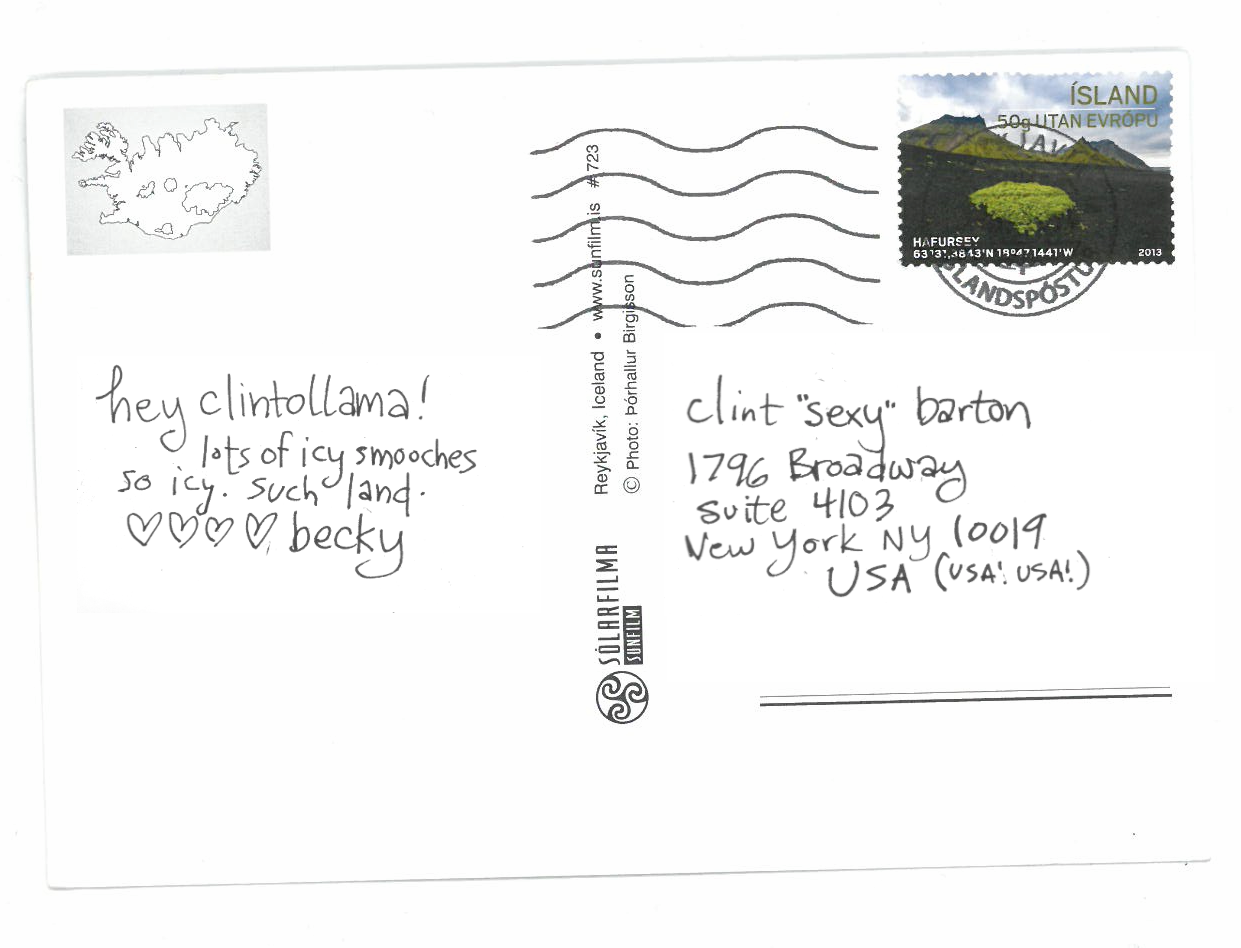 ÍSLAND
50g UTAN EVRÓPU
HAFURSEY
2013
hey clintollama!
lots of icy smooches
so icy. such land.
♡♡♡♡ becky
Reykjavík, Iceland • www.sunfilm.is #723
© Photo: Þórhallur Birgisson
SÓLARFILMA
SUNFILM
clint "sexy" barton
1796 Broadway
suite 4103
New York NY 10019
USA (USA! USA!)